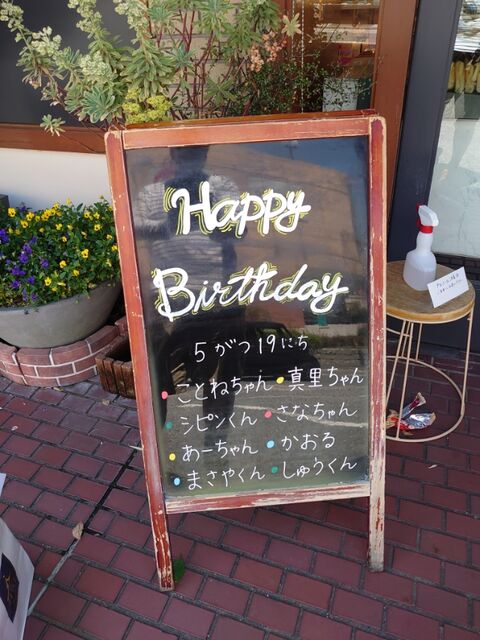 Happy
Birthday
5がつ19にち
ことねちゃん 真里ちゃん
シピンくん さなちゃん
あーちゃん かおる
まさやくん しゅうくん